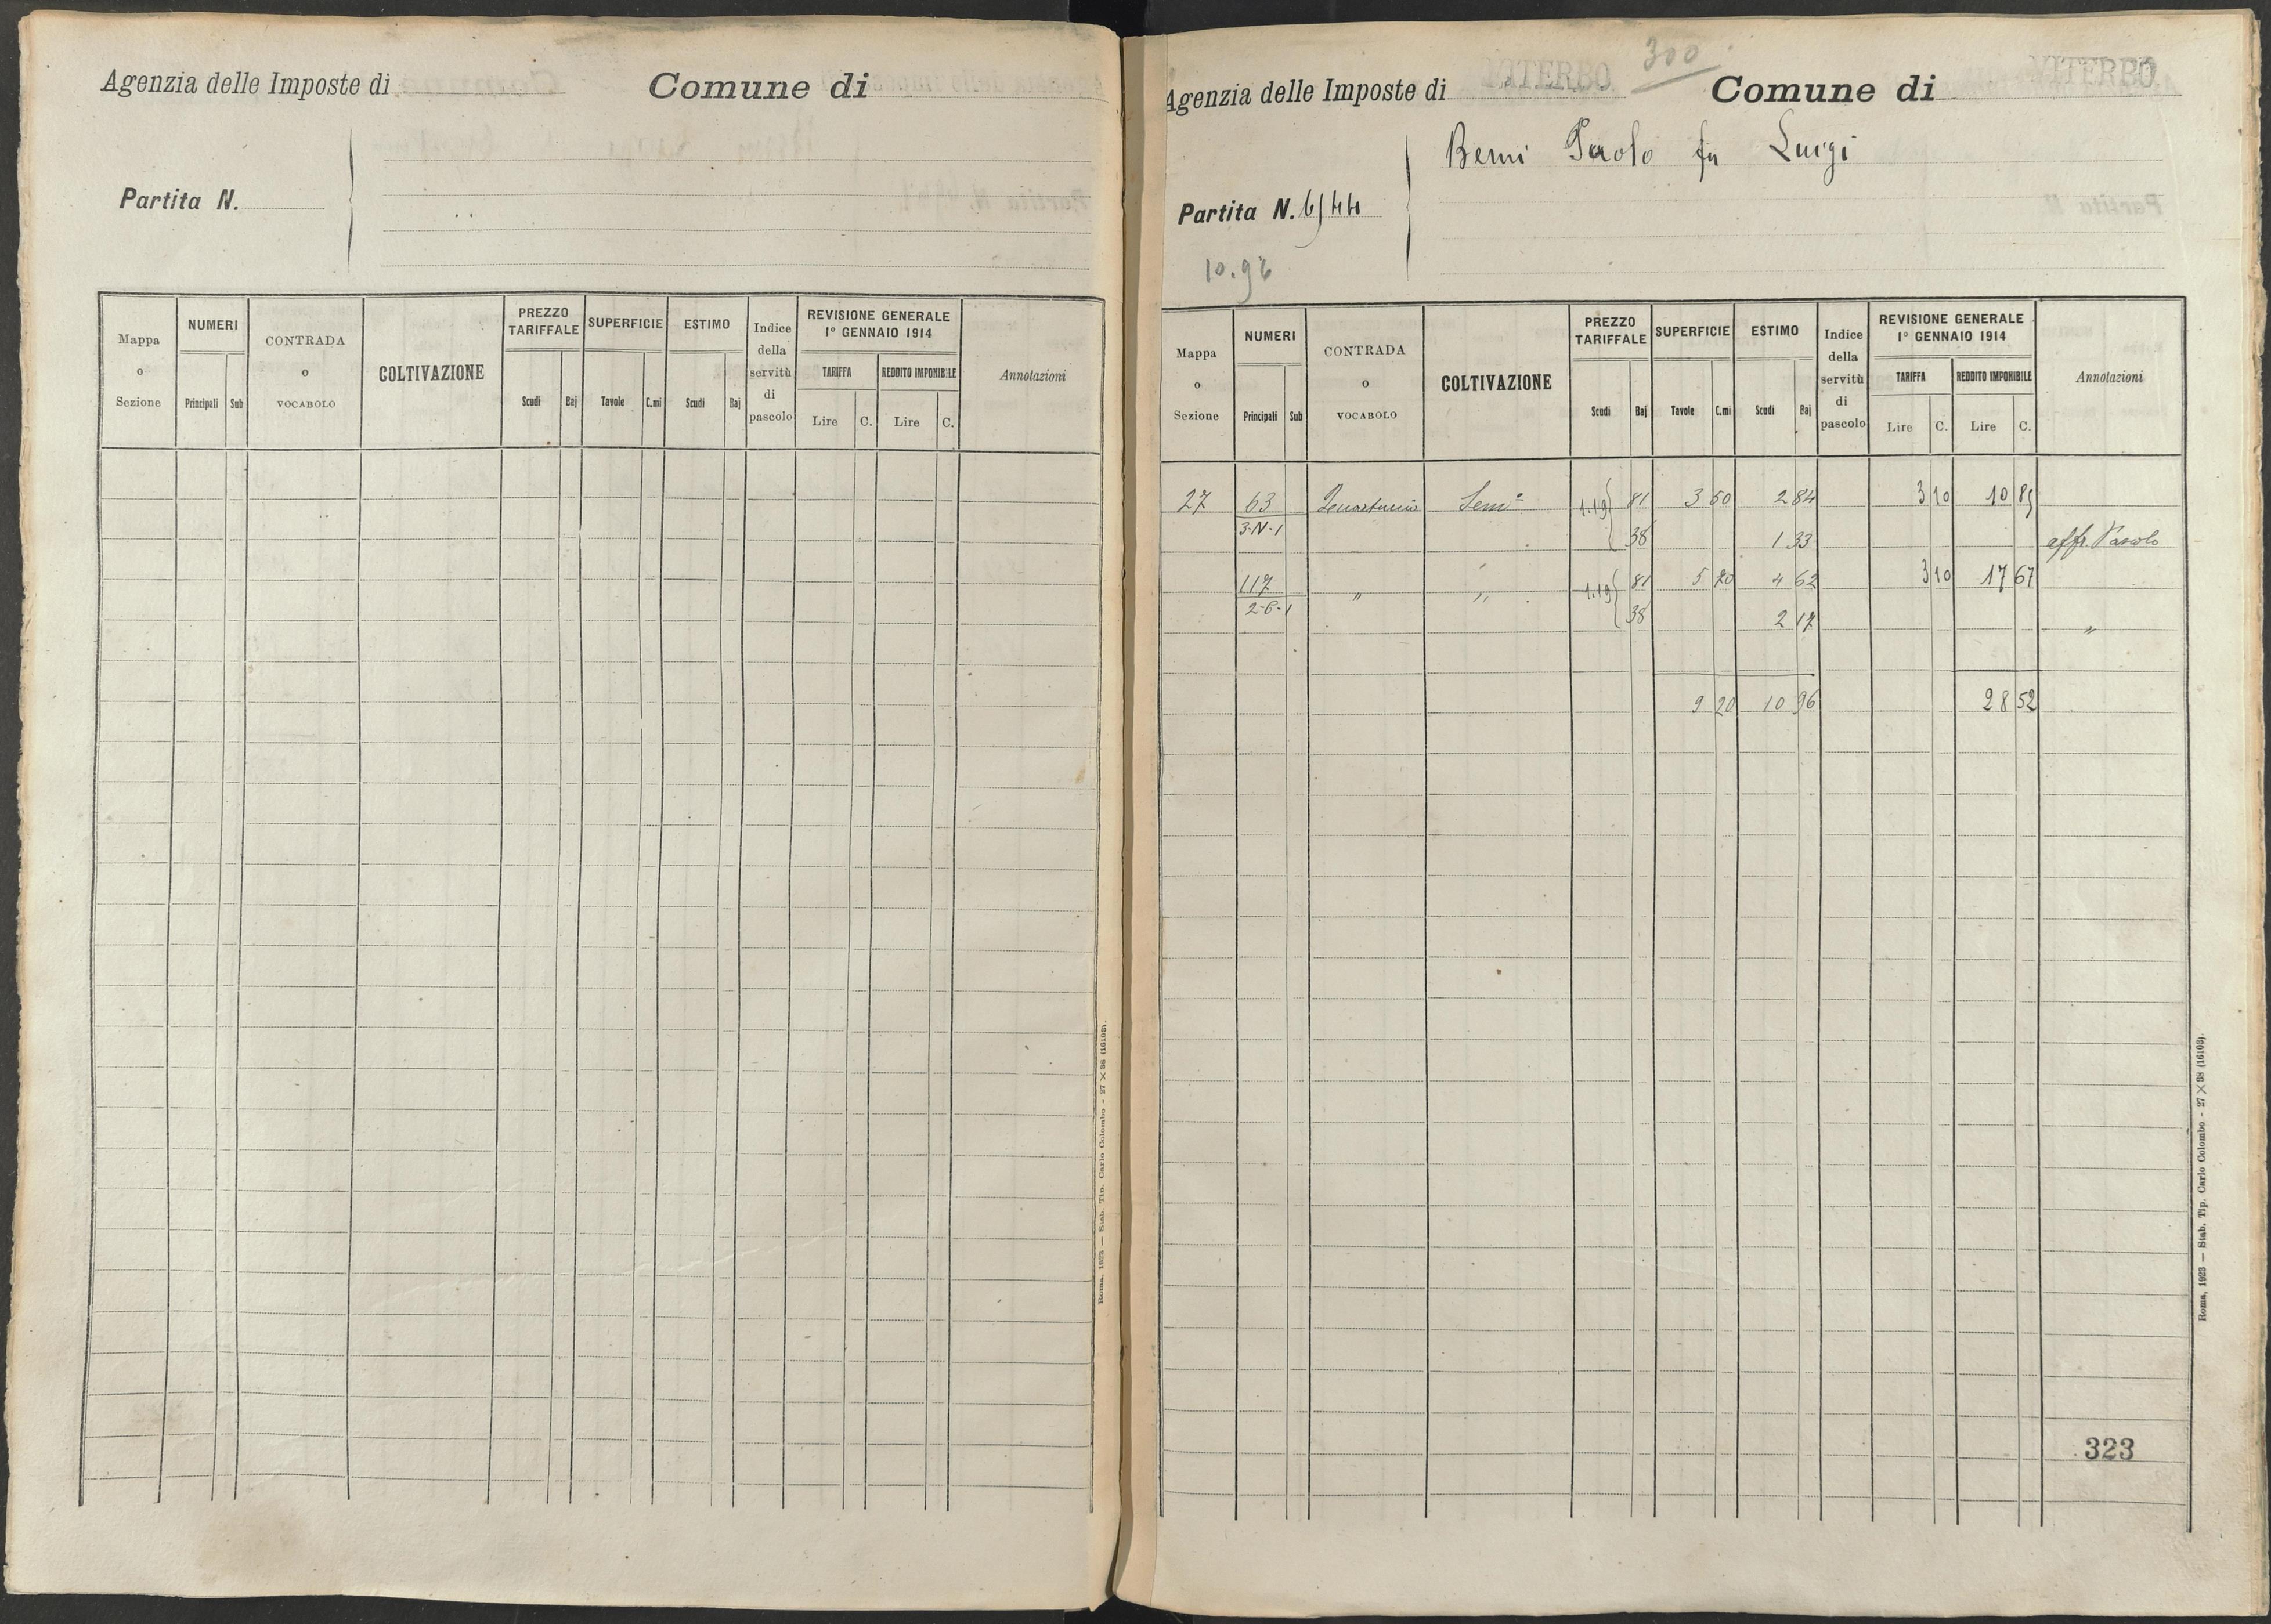 Agenzia delle Imposte di
Comune di
Partita N.
Mappa o Sezione
NUMERI
Principali Sub
CONTRADA o VOCABOLO
COLTIVAZIONE
PREZZO TARIFFALE
Scudi Baj
SUPERFICIE
Tavole C.mi
ESTIMO
Scudi Baj
Indice della servitù di pascolo
REVISIONE GENERALE
1° GENNAIO 1914
TARIFFA
REDDITO IMPONIBILE
Lire C. Lire C.
Annotazioni
Roma, 1923 — Stab. Tip. Carlo Colombo - 27 × 38 (16103).
300
Agenzia delle Imposte di VITERBO
Comune di VITERBO
Paolo fu Luigi
Partita N.
10.96
Mappa o Sezione
NUMERI
Principali Sub
CONTRADA o VOCABOLO
COLTIVAZIONE
PREZZO TARIFFALE
Scudi Baj
SUPERFICIE
Tavole C.mi
ESTIMO
Scudi Baj
Indice della servitù di pascolo
REVISIONE GENERALE
1° GENNAIO 1914
TARIFFA
REDDITO IMPONIBILE
Lire C. Lire C.
Annotazioni
27 63 Sem° 1.19 81 3 50 2 84 3 10 10 85
3-N-1 38 1 33 aff. Pascolo
117 " " 1.19 81 5 70 4 62 3 10 17 67
2-6-1 38 2 17 "
9 20 10 96 28 52
323
Roma, 1923 — Stab. Tip. Carlo Colombo - 27 × 38 (16103).